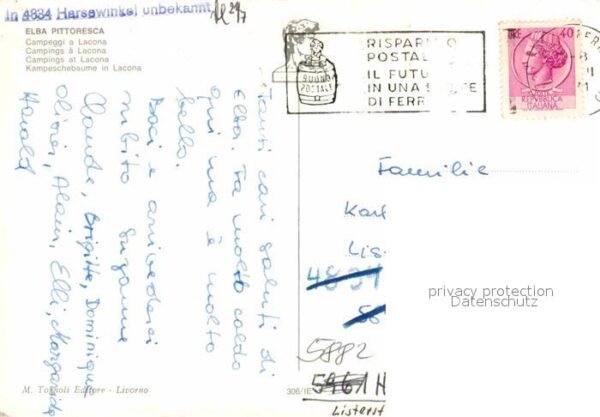 In 4834 Harsewinkel unbekannt
ELBA PITTORESCA
Campeggi a Lacona
Campings à Lacona
Campings at Lacona
Kampeschebaume in Lacona
Tanti cari saluti di
Elba. Fa molto caldo
qui ma è molto
bello.
Baci e arrivederci
subito Suzanne
Claude, Brigitte, Dominique
Olivier, Alain, Elli, Margarida
Harald
M. Tozzoli Editore - Livorno
306/IE
RISPARMIO
POSTAL
IL FUTU
IN UNA
DI FERR
BUONO
POSTALE
LIRE 40
REPVBBLICA
ITALIANA
Familie
Karl
Lis
4834
privacy protection
Datenschutz
5882
5961 H
Listerst